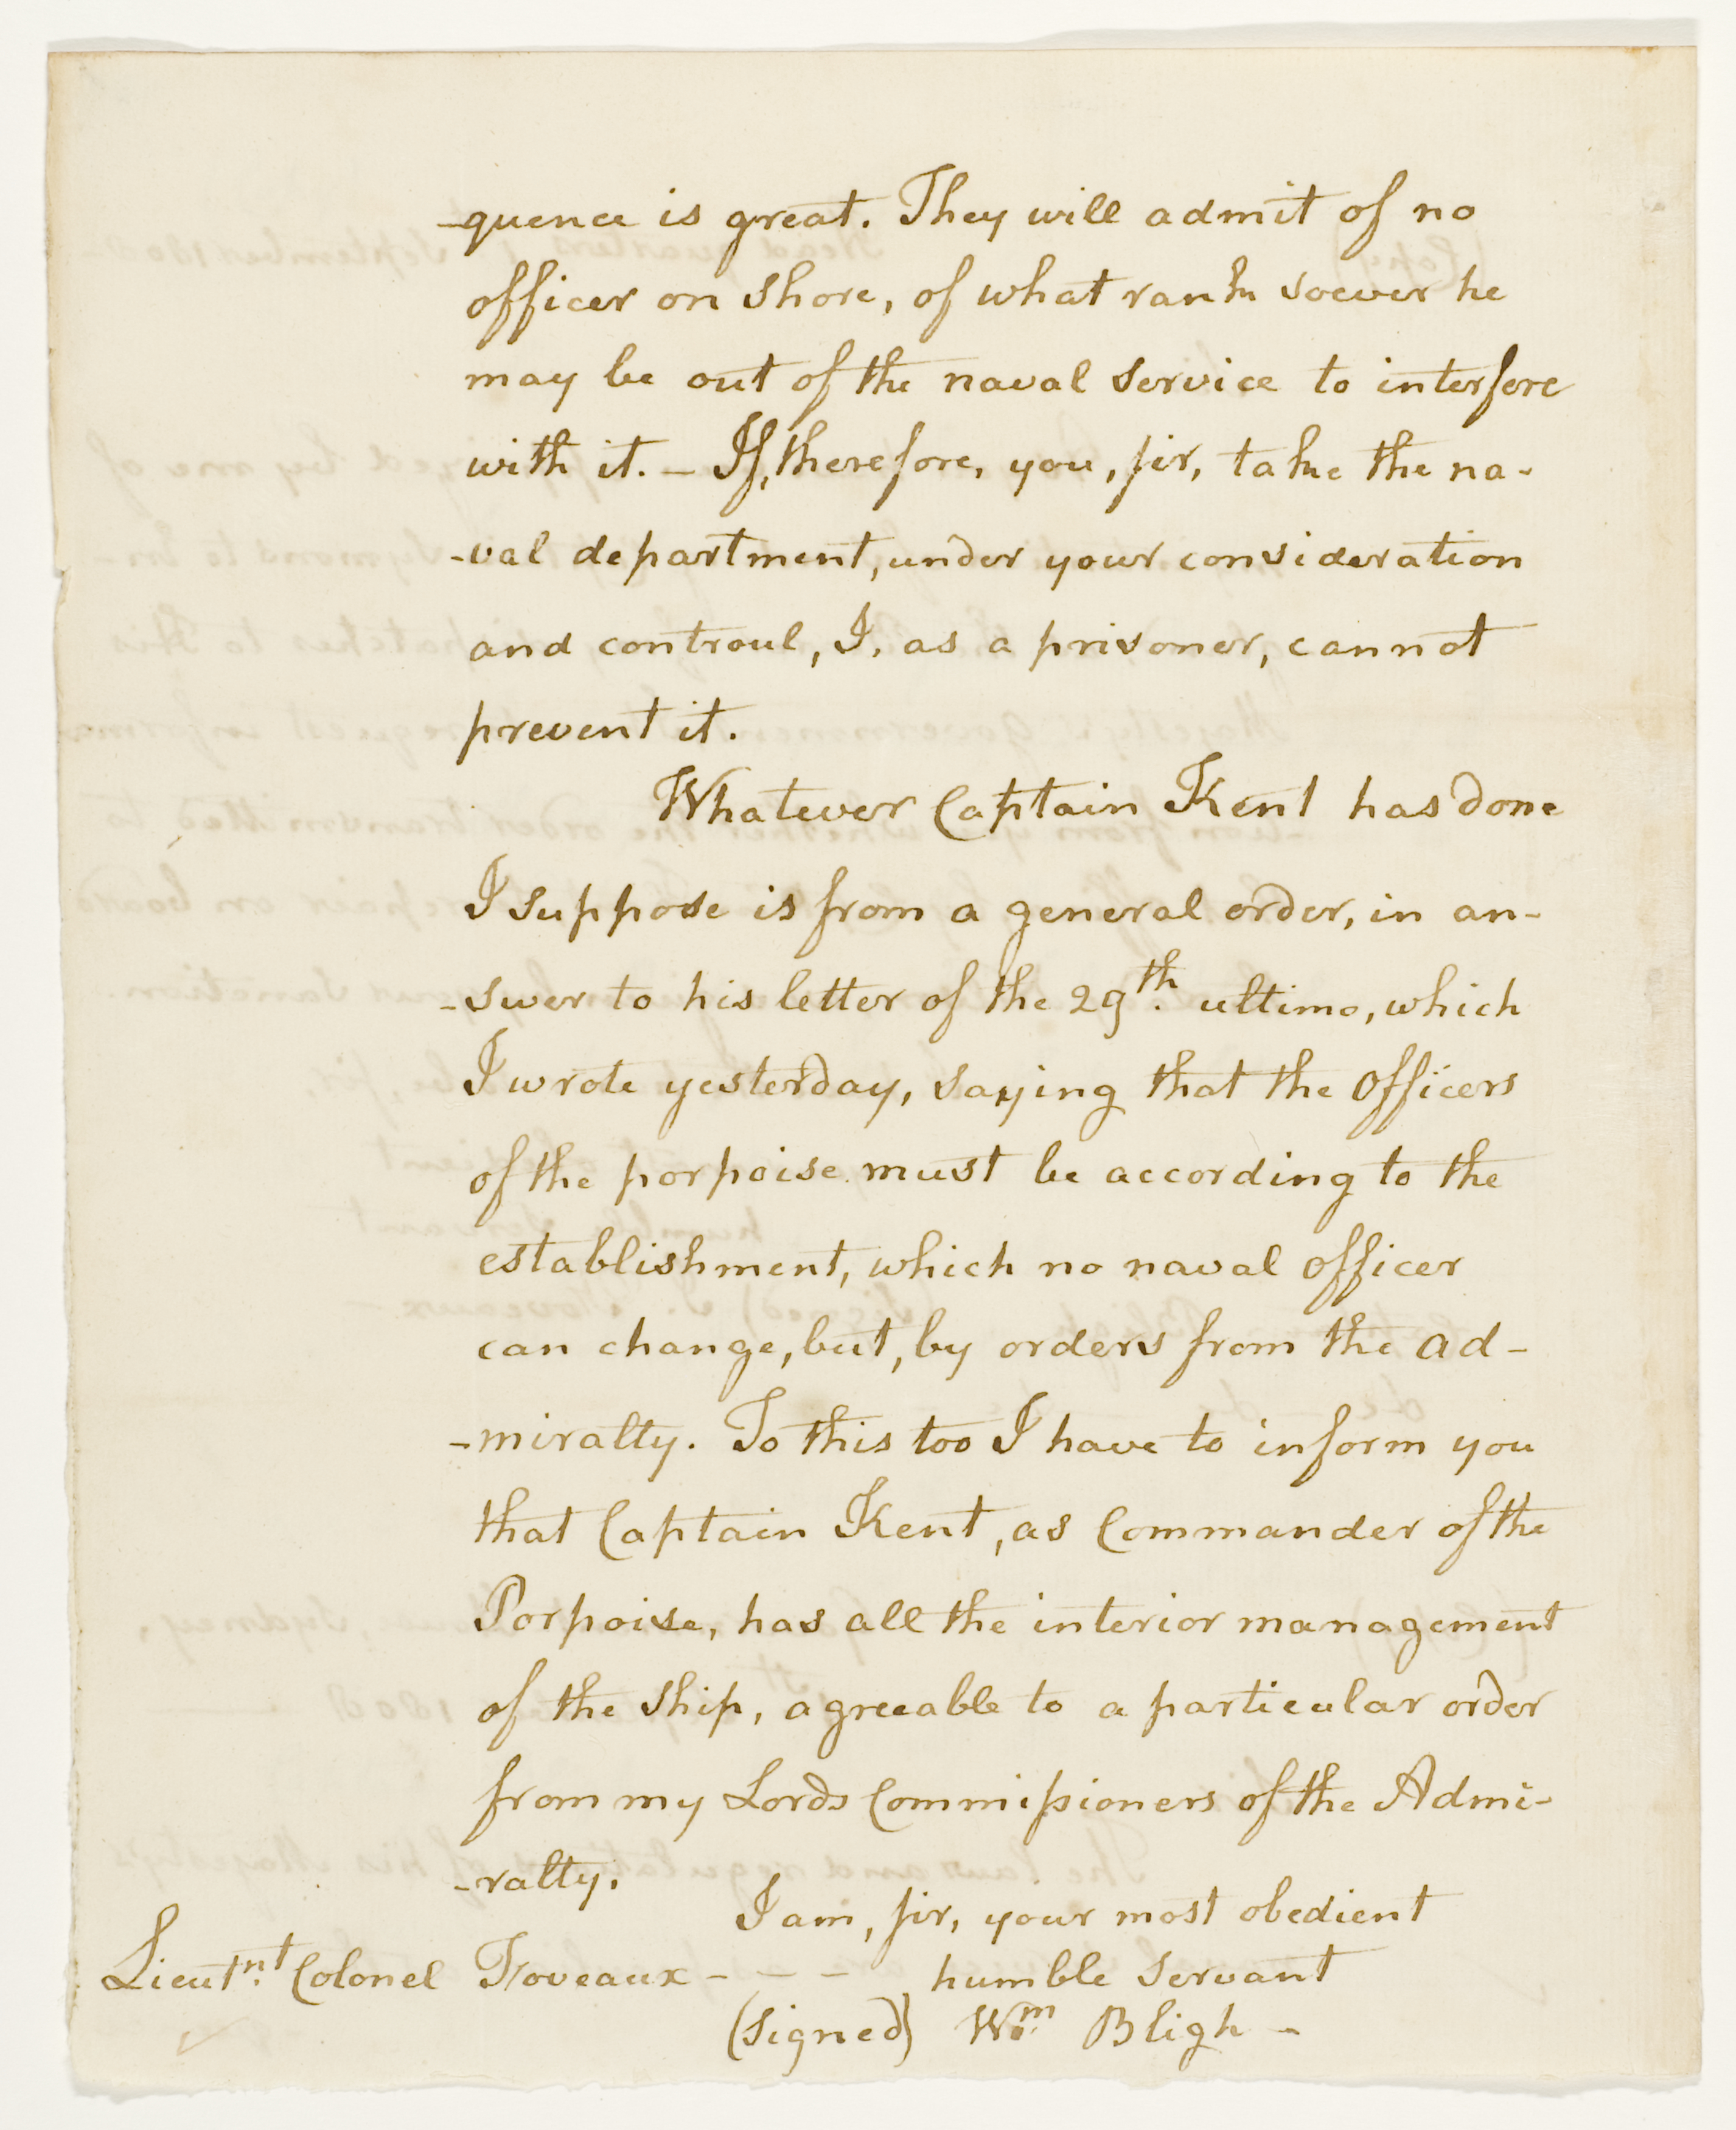 -quence is great. They will admit of no
officer on shore, of what rank soever he
may be out of the naval service to interfere
with it. — If, therefore, you, sir, take the na-
-val department, under your consideration
and controul, I, as a prisoner, cannot
prevent it.
Whatever Captain Kent has done
I suppose is from a general order, in an-
-swer to his letter of the 29th. ultimo, which
I wrote yesterday, saying that the officers
of the porpoise must be according to the
establishment, which no naval officer
can change, but, by orders from the ad-
-miralty. To this too I have to inform you
that Captain Kent, as Commander of the
Porpoise, has all the interior management
of the ship, agreeable to a particular order
from my Lords Commissioners of the Admi-
-ralty.
I am, sir, your most obedient
Lieutnt. Colonel Foveaux - - - humble servant
(signed) Wm. Bligh -